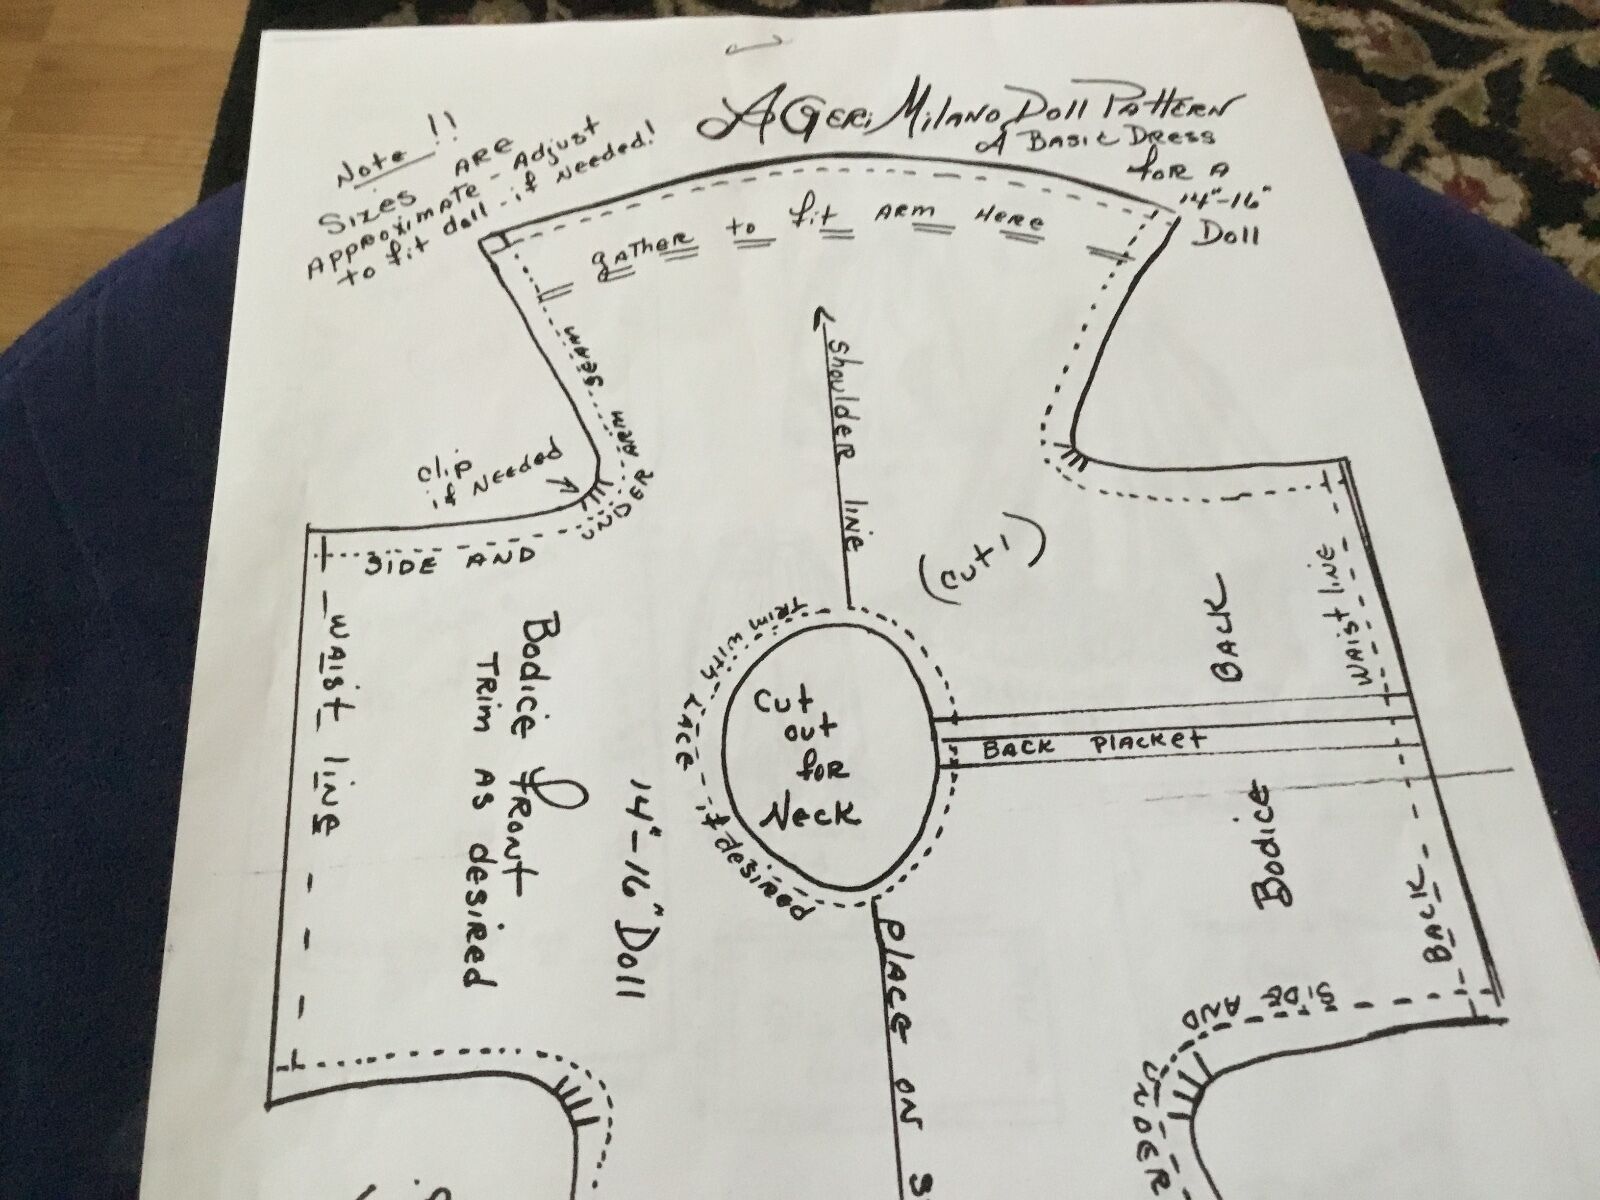 A Geri Milano Doll Pattern
A Basic Dress
for a
14"-16"
Doll
Note!!
Sizes are
approximate - adjust
to fit doll - if needed!
gather to fit arm here
under arm seam
clip
if needed
side and under
shoulder line
(cut 1)
waist line
Bodice front
trim as desired
14"-16" Doll
trim with lace if desired
cut
out
for
Neck
Back placket
Back
waist line
Bodice
Back
side and
under
place on